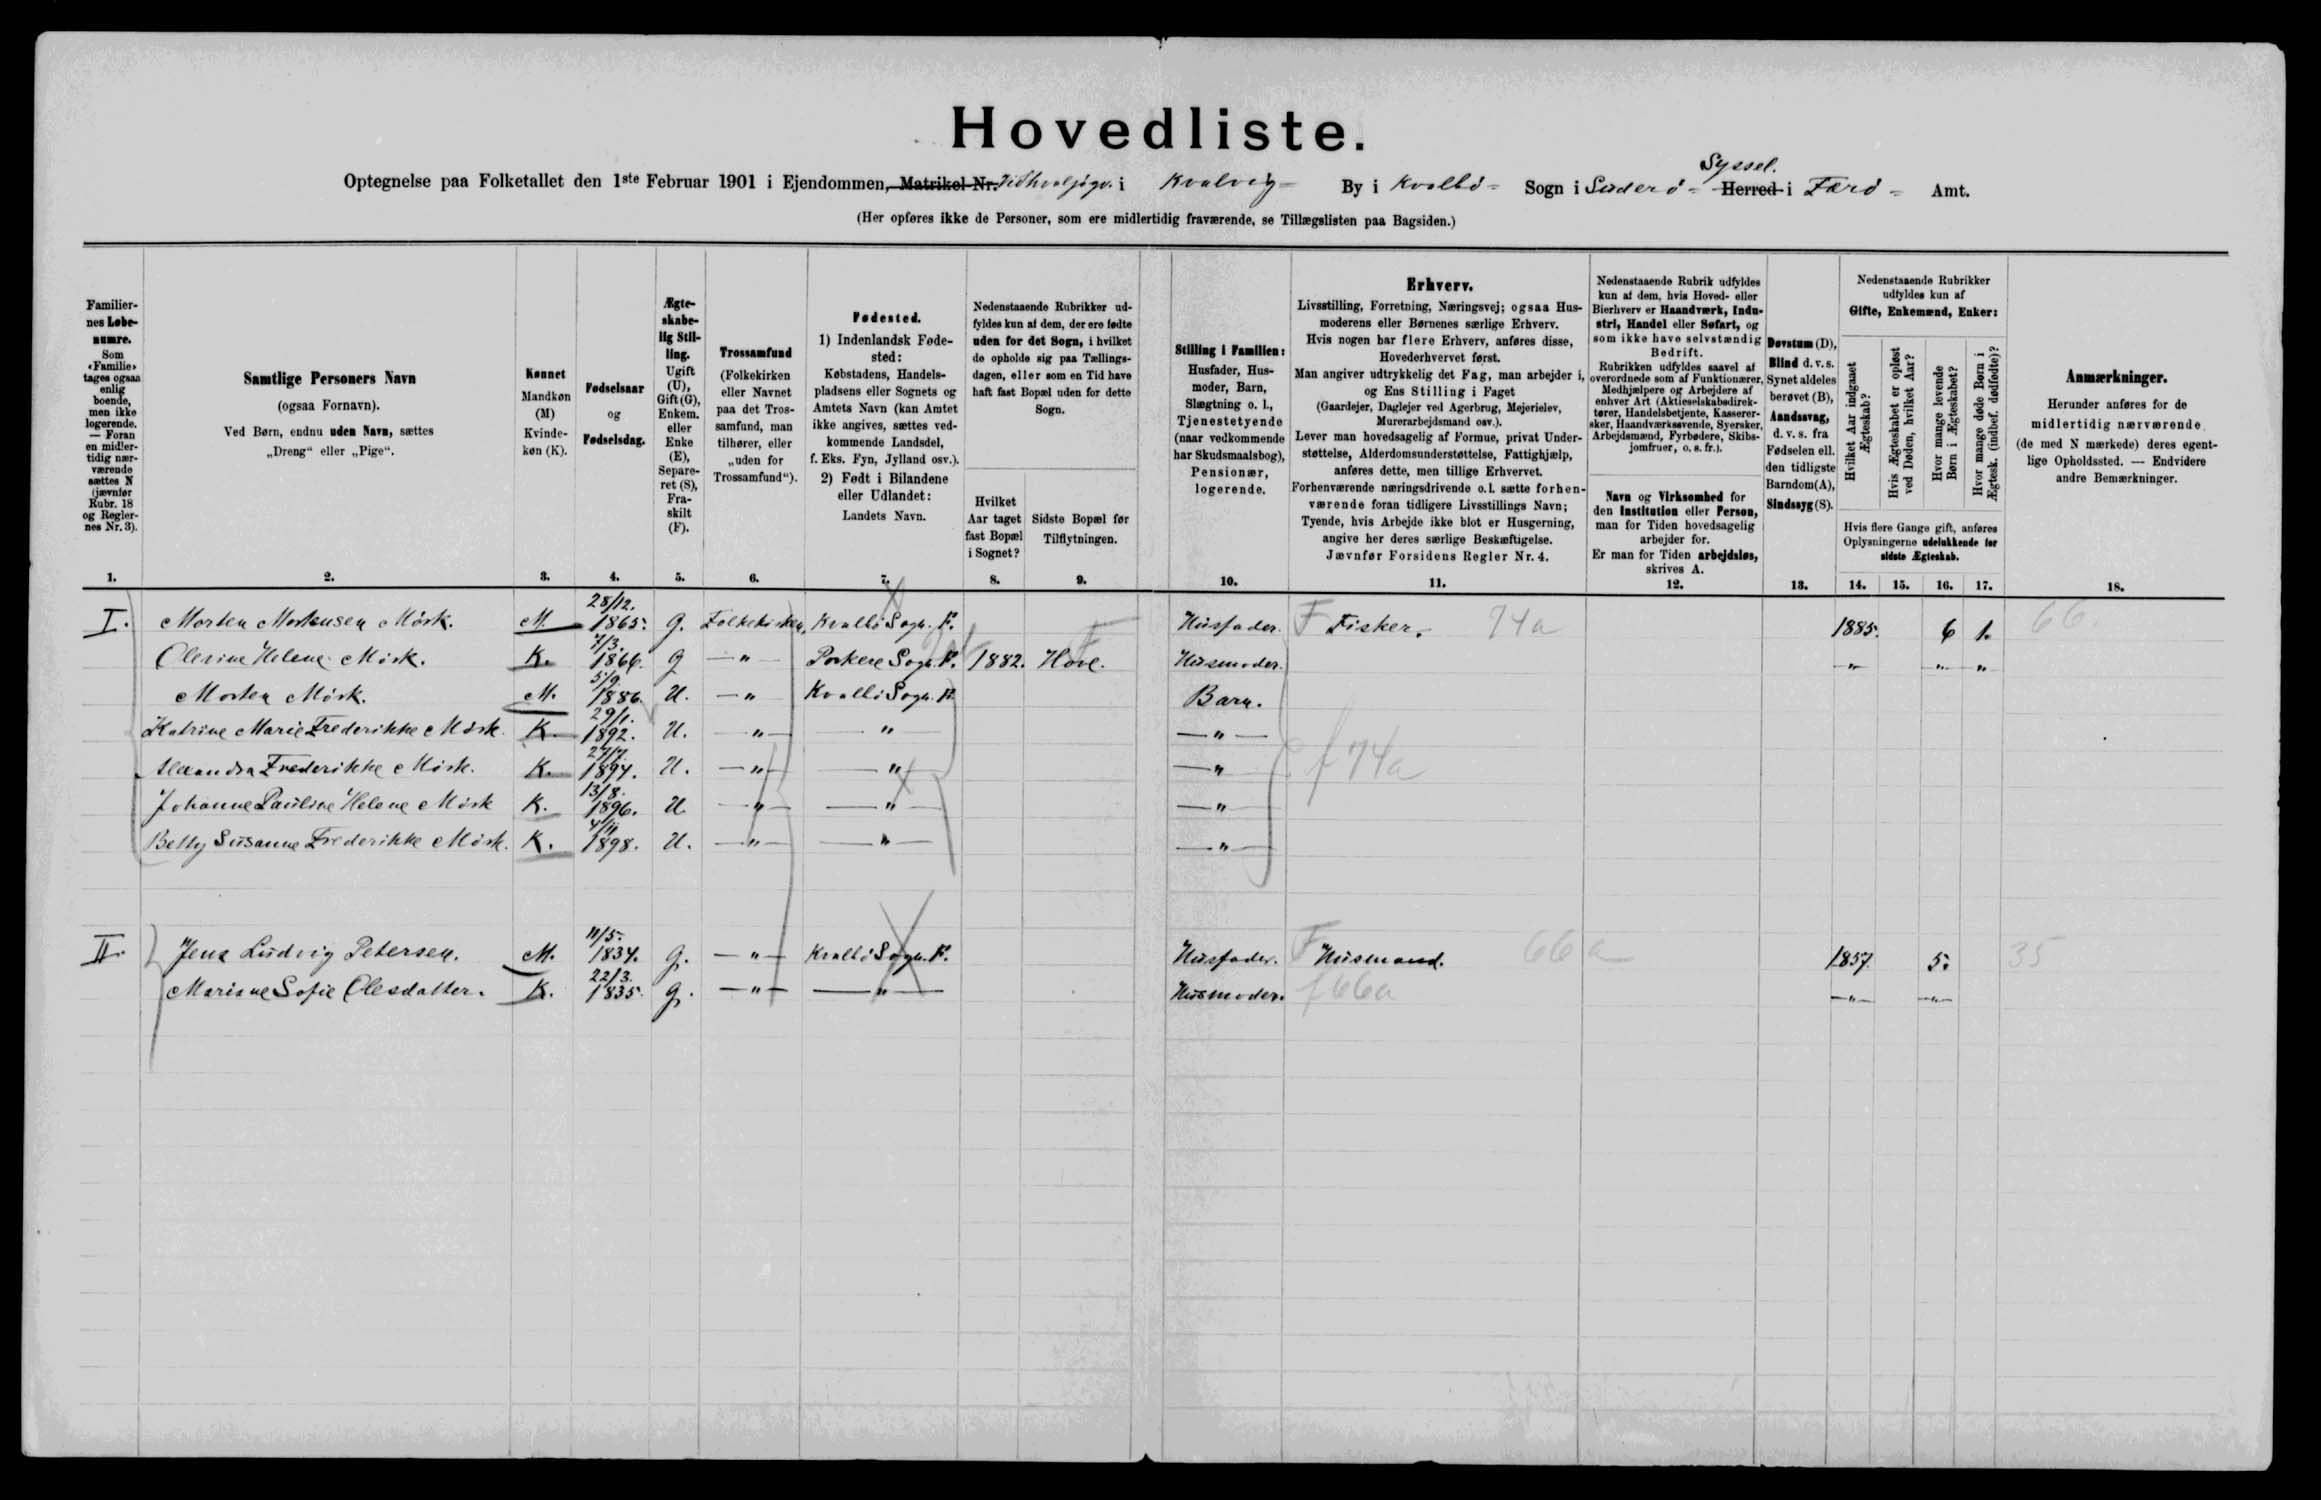 Hovedliste.
Syssel.
Optegnelse paa Folketallet den 1ste Februar 1901 i Ejendommen, Matrikel-Nr. i Kvalvig By i Kvalbö Sogn i Suderö Herred i Færö Amt.
(Her opføres ikke de Personer, som ere midlertidig fraværende, se Tillægslisten paa Bagsiden.)
Familier-
nes Løbe-
numre.
Som
«Familie»
tages ogsaa
enlig
boende,
men ikke
logerende.
— Foran
en midler-
tidig nær-
værende
sættes N
(jævnfør
Rubr. 18
og Regler-
nes Nr. 3).
1.
Samtlige Personers Navn
(ogsaa Fornavn).
Ved Børn, endnu uden Navn, sættes
„Dreng“ eller „Pige“.
2.
Kønnet
Mandkøn
(M)
Kvinde-
køn (K).
3.
Fødselsaar
og
Fødselsdag.
4.
Ægte-
skabe-
lig Stil-
ling.
Ugift
(U),
Gift (G),
Enkem.
eller
Enke
(E),
Separe-
ret (S),
Fra-
skilt
(F).
5.
Trossamfund
(Folkekirken
eller Navnet
paa det Tros-
samfund, man
tilhører, eller
„uden for
Trossamfund“).
6.
Fødested.
1) Indenlandsk Føde-
sted:
Købstadens, Handels-
pladsens eller Sognets og
Amtets Navn (kan Amtet
ikke angives, sættes ved-
kommende Landsdel,
f. Eks. Fyn, Jylland osv.).
2) Født i Bilandene
eller Udlandet:
Landets Navn.
7.
Nedenstaaende Rubrikker ud-
fyldes kun af dem, der ere fødte
uden for det Sogn, i hvilket
de opholde sig paa Tællings-
dagen, eller som en Tid have
haft fast Bopæl uden for dette
Sogn.
Hvilket
Aar taget
fast Bopæl
i Sognet?
8.
Sidste Bopæl før
Tilflytningen.
9.
Stilling i Familien:
Husfader, Hus-
moder, Barn,
Slægtning o. l.,
Tjenestetyende
(naar vedkommende
har Skudsmaalsbog),
Pensionær,
logerende.
10.
Erhverv.
Livsstilling, Forretning, Næringsvej; ogsaa Hus-
moderens eller Børnenes særlige Erhverv.
Hvis nogen har flere Erhverv, anføres disse,
Hovederhvervet først.
Man angiver udtrykkelig det Fag, man arbejder i,
og Ens Stilling i Faget
(Gaardejer, Daglejer ved Agerbrug, Mejerielev,
Murerarbejdsmand osv.).
Lever man hovedsagelig af Formue, privat Under-
støttelse, Alderdomsunderstøttelse, Fattighjælp,
anføres dette, men tillige Erhvervet.
Forhenværende næringsdrivende o. l. sætte forhen-
værende foran tidligere Livsstillings Navn;
Tyende, hvis Arbejde ikke blot er Husgerning,
angive her deres særlige Beskæftigelse.
Jævnfør Forsidens Regler Nr. 4.
11.
Nedenstaaende Rubrik udfyldes
kun af dem, hvis Hoved- eller
Bierhverv er Haandværk, Indu-
stri, Handel eller Søfart, og
som ikke have selvstændig
Bedrift.
Rubrikken udfyldes saavel af
overordnede som af Funktionærer,
Medhjælpere og Arbejdere af
enhver Art (Aktieselskabsdirek-
tører, Handelsbetjente, Kasserer-
sker, Haandværkssvende, Syersker,
Arbejdsmænd, Fyrbødere, Skibs-
jomfruer, o. s. fr.).
Navn og Virksomhed for
den Institution eller Person,
man for Tiden hovedsagelig
arbejder for.
Er man for Tiden arbejdsløs,
skrives A.
12.
Døvstum (D),
Blind d. v. s.
Synet aldeles
berøvet (B),
Aandssvag,
d. v. s. fra
Fødselen ell.
den tidligste
Barndom (A),
Sindssyg (S).
13.
Nedenstaaende Rubrikker
udfyldes kun af
Gifte, Enkemænd, Enker:
Hvilket Aar indgaaet
Ægteskab?
Hvis Ægteskabet er opløst
ved Døden, hvilket Aar?
Hvor mange levende
Børn i Ægteskabet?
Hvor mange døde Børn i
Ægtesk. (indbef. dødfødte)?
Hvis flere Gange gift, anføres
Oplysningerne udelukkende for
sidste Ægteskab.
14. 15. 16. 17.
Anmærkninger.
Herunder anføres for de
midlertidig nærværende
(de med N mærkede) deres egent-
lige Opholdssted. — Endvidere
andre Bemærkninger.
18.
I. Morten Mortensen Mörk. M. 28/12. 1865. G. Folkekirken. Kvalbö Sogn. F. Husfader. F Fisker. 74a 1885. 6 1. 66
Olevine Helene Mörk. K. 7/3. 1866. G — " — Porkere Sogn. F. 1882. Hove. F Husmoder. — " — — " — "
Morten Mörk. M. 5/9. 1886. U. — " Kvalbö Sogn. F. Barn.
Katrine Marie Frederikke Mörk. K. 29/1. 1892. U. — " — — " — — " —
Alexandra Frederikke Mörk. K. 27/7. 1894. U. — " — — " — — " f 74a
Johanne Pauline Helene Mörk K. 13/8. 1896. U. — " — — " — — " —
Betty Susanne Frederikke Mörk. K. 4/11 1898. U. — " — — " — — " —
II. Jens Ludvig Petersen. M. 11/5. 1834. G. — " — Kvalbö Sogn. F. Husfader. F Husmand. 66a 1857. 5. 35
Mariane Sofie Olesdatter. K. 22/3. 1835. G. — " — — " — Husmoder. f 66a — " — — " —